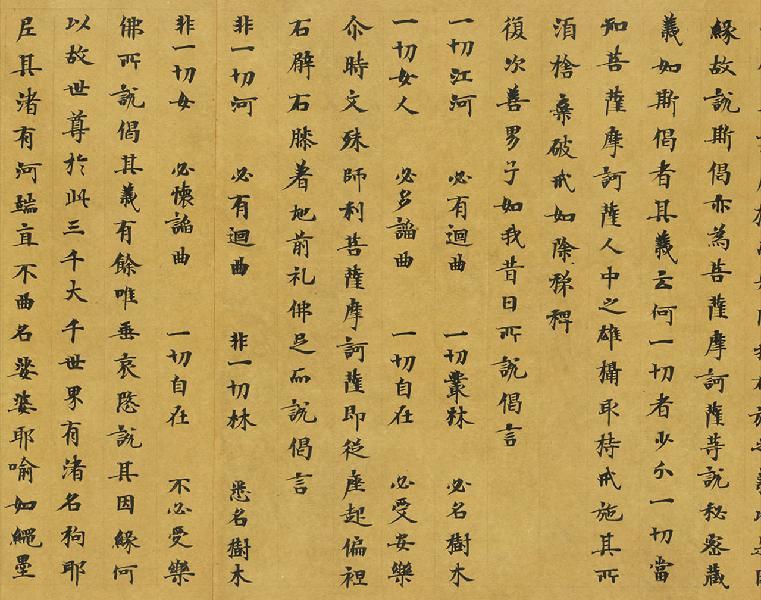 緣故說斯偈亦為菩薩摩訶薩等說秘密藏
義如斯偈者其義云何一切者少分一切當
知菩薩摩訶薩人中之雄攝取持戒施其所
須捨棄破戒如除稊稗
復次善男子如我昔日所說偈言
一切江河 必有迴曲 一切叢林 必名樹木
一切女人 必多諂曲 一切自在 必受安樂
尒時文殊師利菩薩摩訶薩即從座起偏袒
右臂右膝著地前礼佛足而說偈言
非一切河 必有迴曲 非一切林 悉名樹木
非一切女 必懷諂曲 一切自在 不必受樂
佛所說偈其義有餘唯垂哀愍說其因緣何
以故世尊於此三千大千世界有渚名拘耶
尼其渚有河端直不曲名娑婆耶喻如繩墨